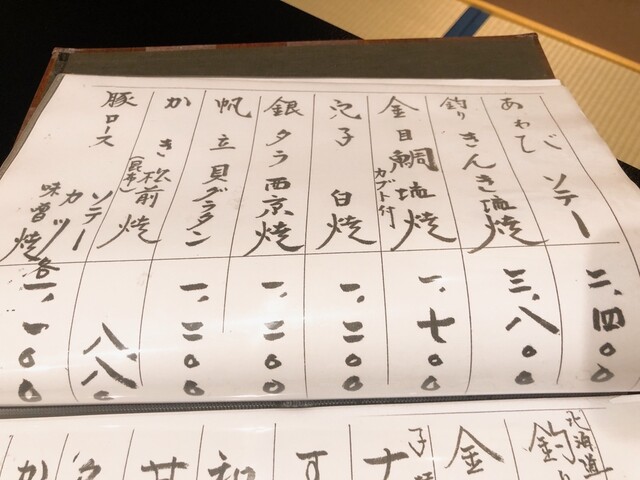 あわびソテー 二、四〇〇
釣りきんき塩焼 三、八〇〇
金目鯛塩焼 カブト付 一、七〇〇
穴子白焼 一、二〇〇
銀タラ西京焼 一、二〇〇
帆立貝グラタン 一、二〇〇
かき松前焼(昆布) 八八
豚ロース ソテー カツ 味噌焼 各一、一〇〇
北海道
釣り
金
子
ナ
す
和
か